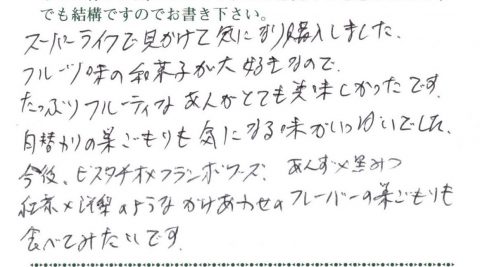 でも結構ですのでお書き下さい。
スーパーライフで見かけて気になり購入しました。
フルーツ味の和菓子が大好きなので、
たっぷりフルーティなあんがとても美味しかったです。
月替わりの巣ごもりも気になる味がいっぱいでした。
今後、ピスタチオ×フランボワーズ、あんず×黒みつ
紅茶×洋梨のようなかけあわせのフレーバーの巣ごもりも
食べてみたいです。